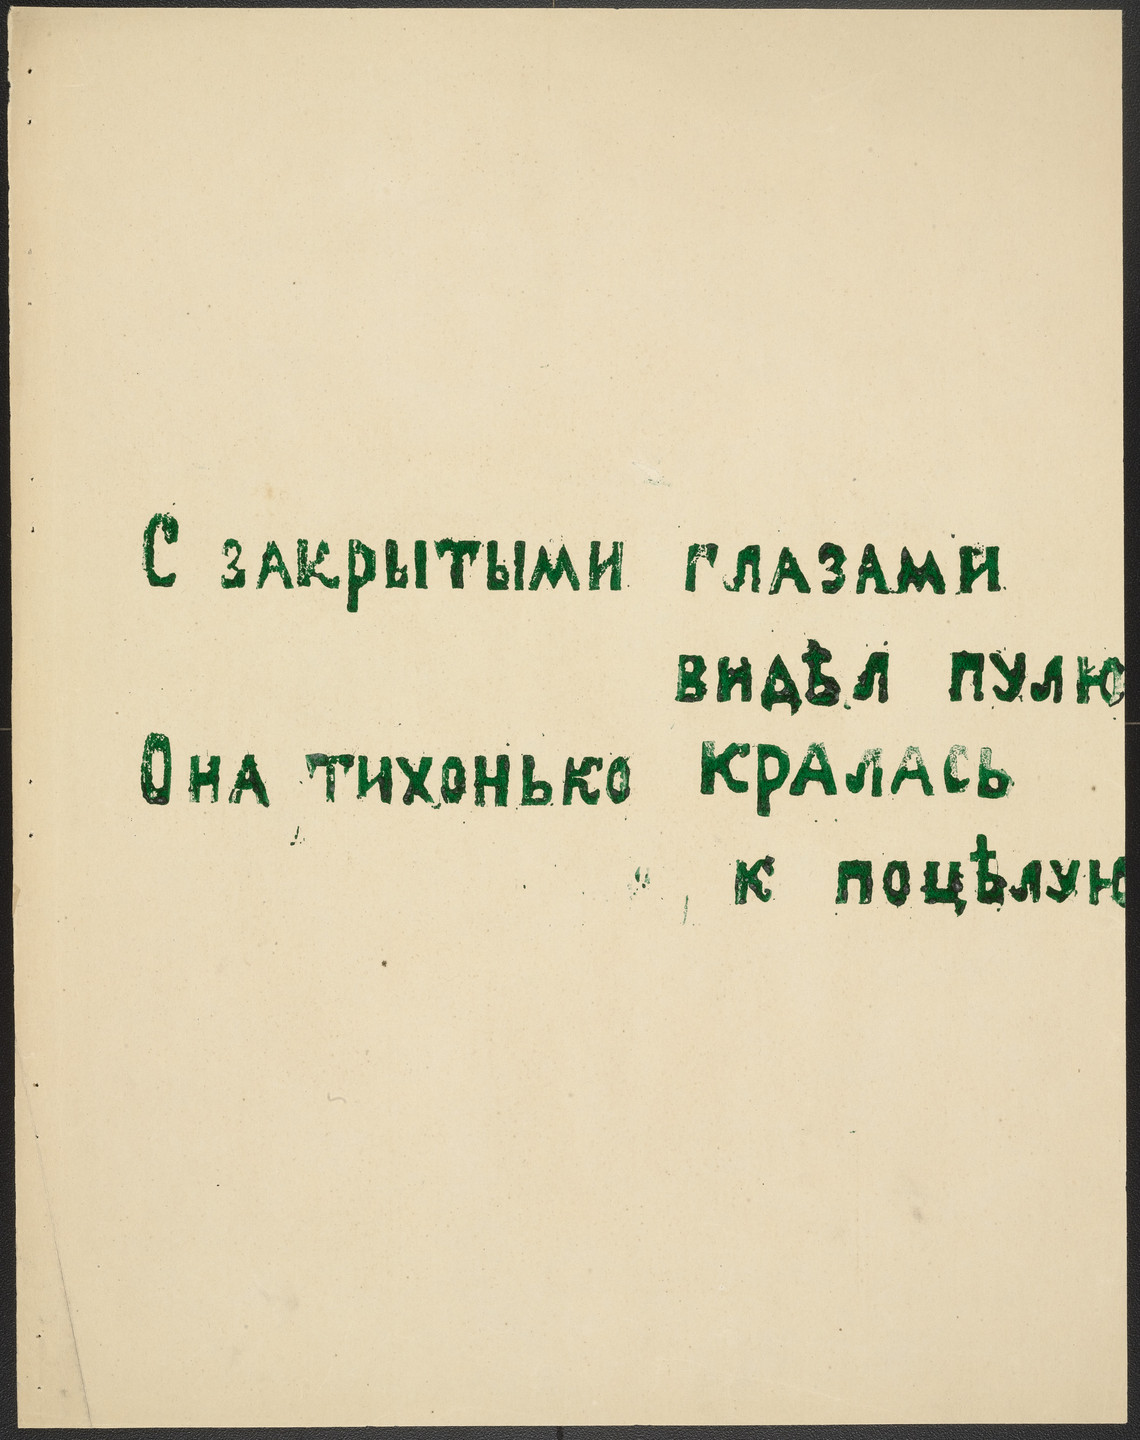 С закрытыми глазами
видѣл пулю
Она тихонько кралась
к поцѣлую